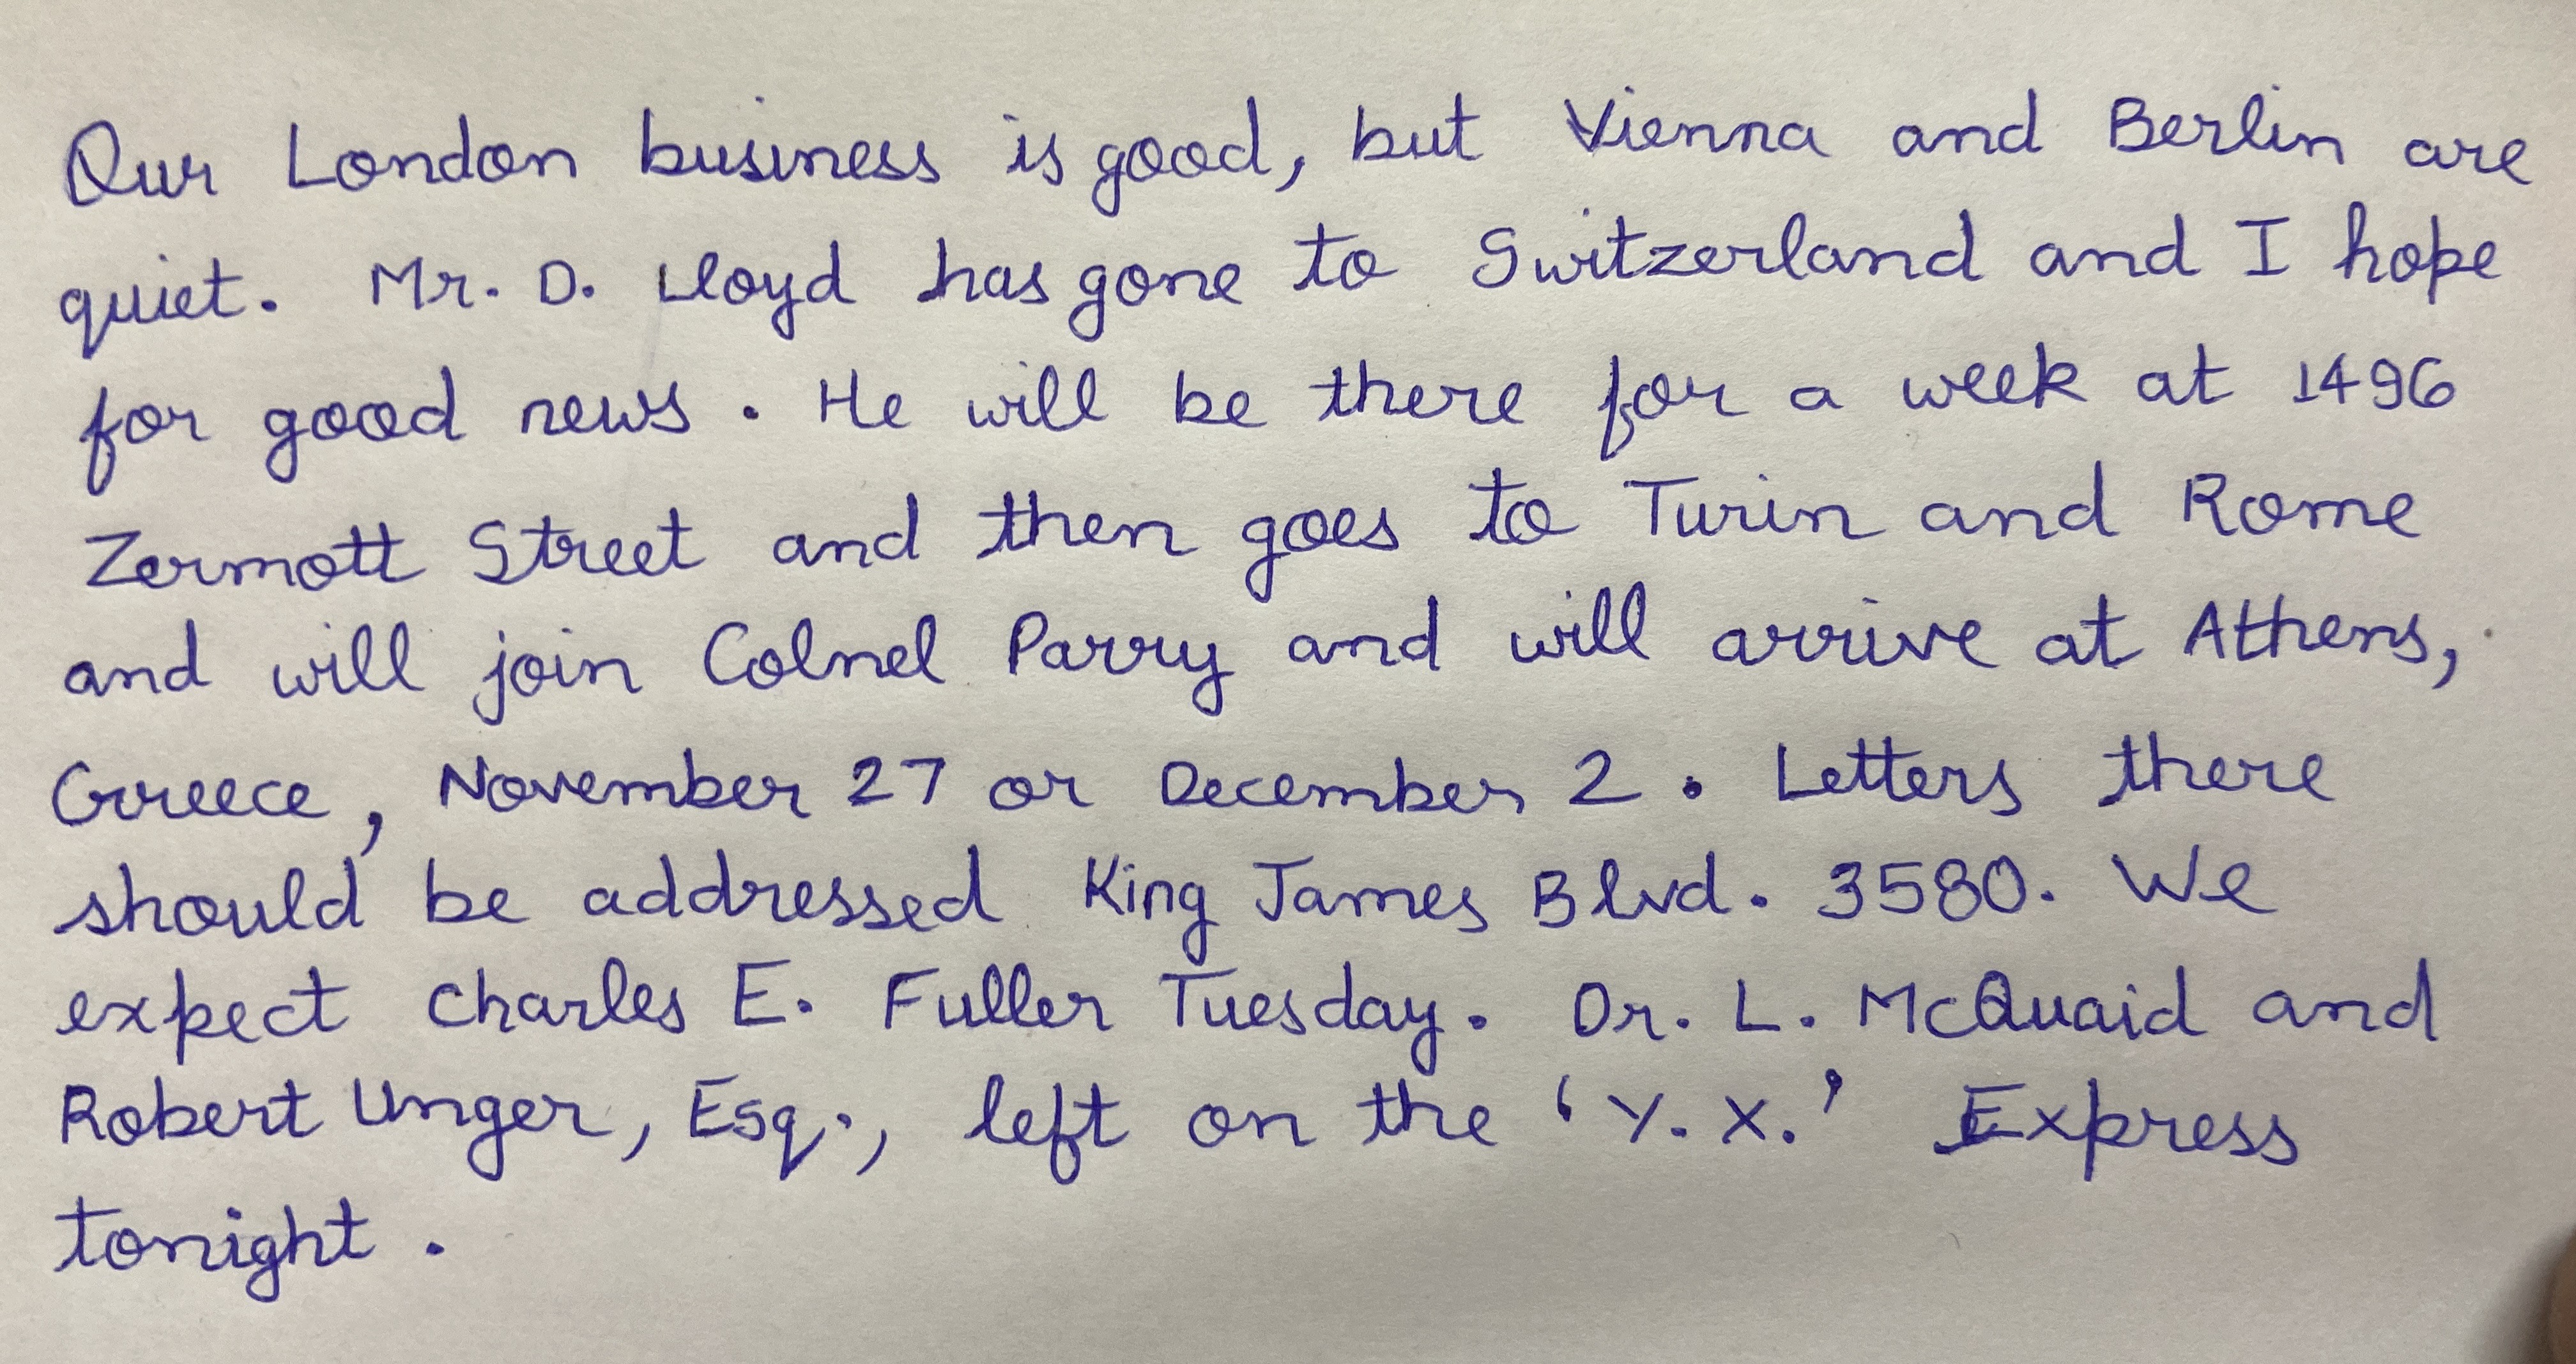 Our London business is good, but Vienna and Berlin are
quiet. Mr. D. Lloyd has gone to Switzerland and I hope
for good news. He will be there for a week at 1496
Zermott Street and then goes to Turin and Rome
and will join Colnel Parry and will arrive at Athens,
Greece, November 27 or December 2. Letters there
should be addressed King James Blvd. 3580. We
expect Charles E. Fuller Tuesday. Dr. L. McQuaid and
Robert Unger, Esq., left on the 'Y. X.' Express
tonight.